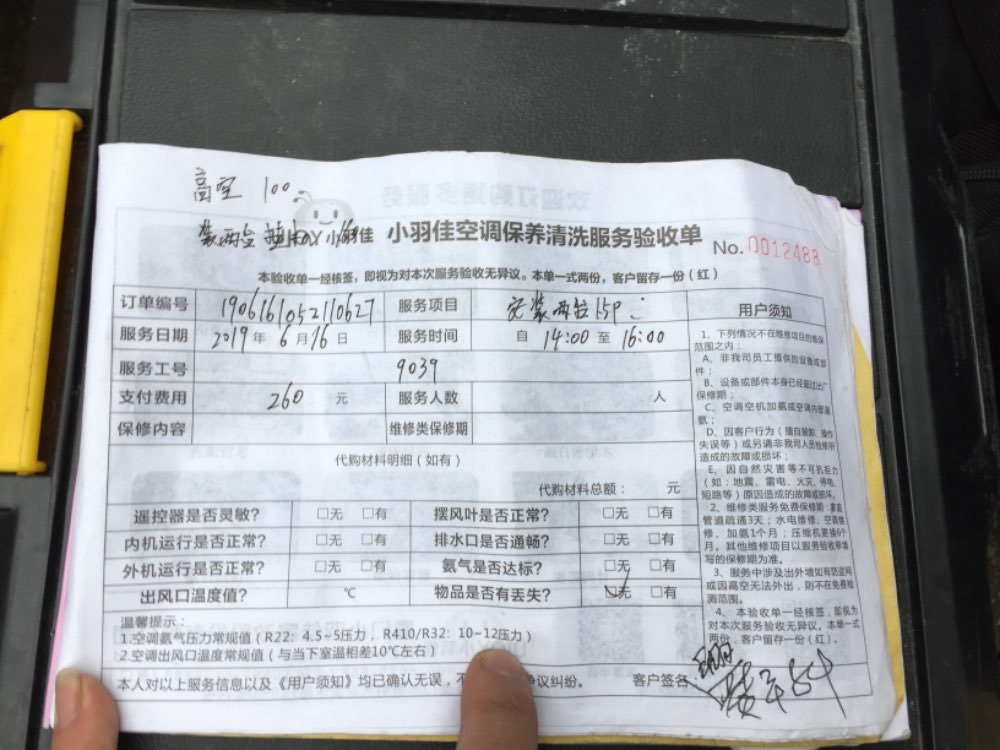 高空 100
装两台
小羽佳 小羽佳空调保养清洗服务验收单 No.0012488
本验收单一经核签，即视为对本次服务验收无异议。本单一式两份，客户留存一份（红）
订单编号 1906161052110627 服务项目 安装两台1.5P
服务日期 2019年6月16日 服务时间 自 14:00 至 16:00
服务工号 9039
支付费用 260 元 服务人数 人
保修内容 维修类保修期
代购材料明细（如有）
代购材料总额： 元
遥控器是否灵敏？ □无 □有 摆风叶是否正常？ □无 □有
内机运行是否正常？ □无 □有 排水口是否通畅？ □无 □有
外机运行是否正常？ □无 □有 氨气是否达标？ □无 □有
出风口温度值？ ℃ 物品是否有丢失？ ☑无 □有
温馨提示：
1.空调氨气压力常规值（R22：4.5~5压力，R410/R32：10~12压力）
2.空调出风口温度常规值（与当下室温相差10℃左右）
本人对以上服务信息以及《用户须知》均已确认无误，不 争议纠纷。 客户签名：
用户须知
1、下列情况不在维修项目的维保
范围之内：
A、非我司员工提供的设备或部
件；
B、设备或部件本身已经超过出厂
保修期；
C、空调空机加氨或空调内部漏
氨；
D、因客户行为（擅自装卸、操作
失误等）或另请非我司人员检修所
造成的故障或损坏；
E、因自然灾害等不可抗压力
（如：地震、雷电、火灾、停电、
短路等）原因造成的故障或损坏。
2、维修类服务免费保修期：家庭
管道疏通3天；水电维修、空调维
修、加氨1个月；压缩机更换6个
月。其他维修项目以服务验收单填
写的保修期为准。
3、服务中涉及出外墙如有防盗网
或因高空无法外出，则不在免费检
测范围。
4、本验收单一经核签，即视为
对本次服务验收无异议。本单一式
两份，客户留存一份（红）。